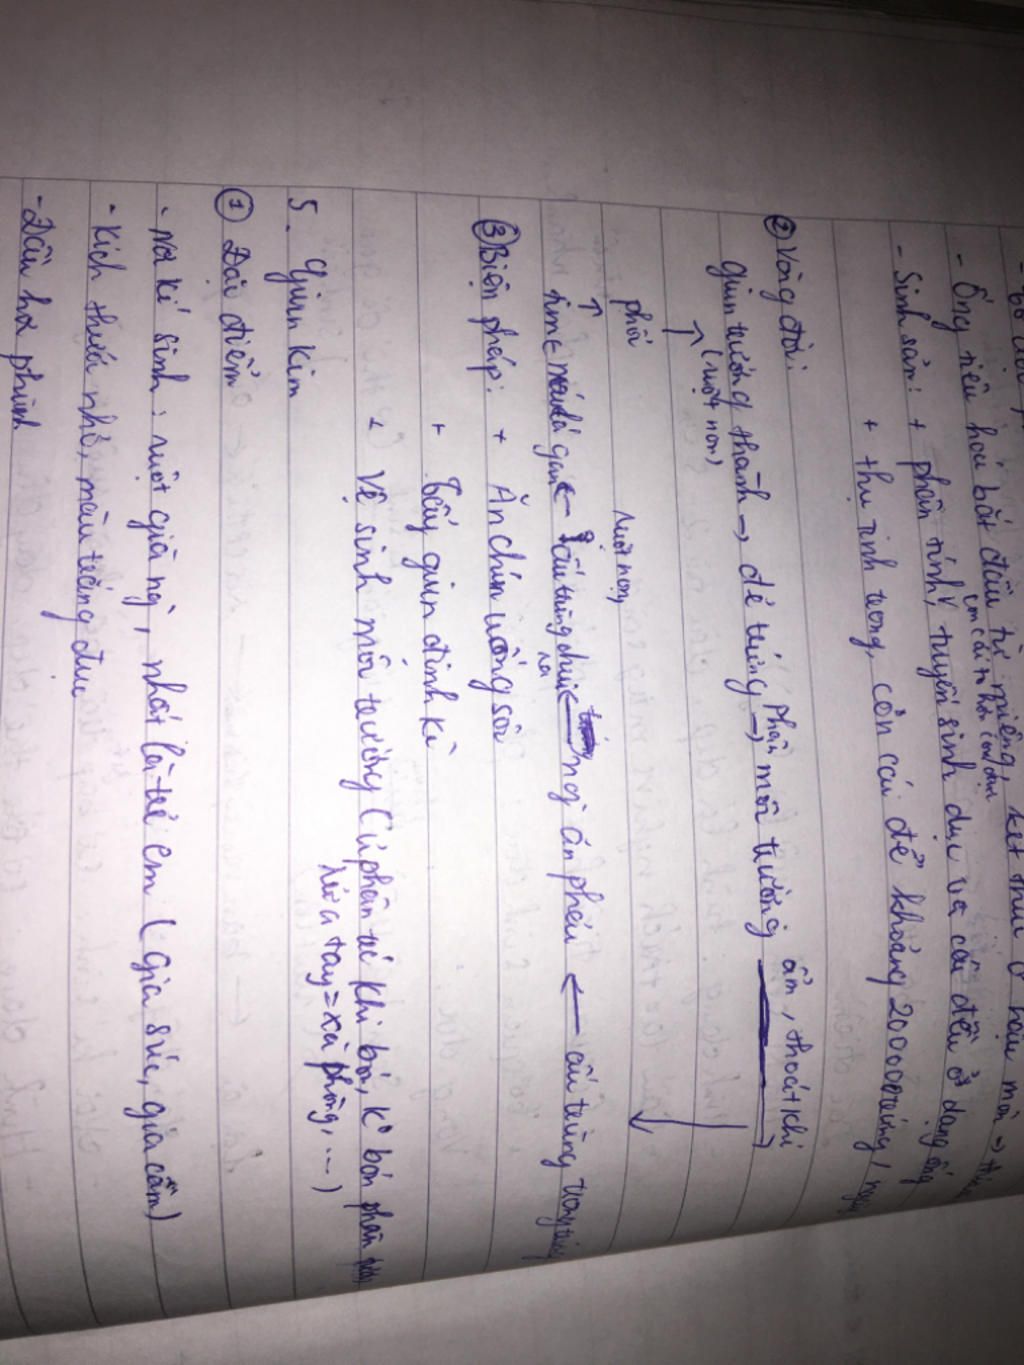 - Ống tiêu hoá bắt đầu từ miệng, kết thúc ở hậu môn →
- Sinh sản: + phân tính, tuyến sinh dục và cái đều ở dạng ống
+ thụ tinh trong, con cái đẻ khoảng 200000 trứng / ngày
② Vòng đời:
giun trưởng thành → đẻ trứng → phân môi trường ẩm, thoáng khí
↑ (ruột non)
phổi ruột non,
↑ tim ← gan ← ấu trùng chui ra ← ng ăn phải ← ấu trùng trong trứng
③ Biện pháp: + Ăn chín uống sôi
+ tẩy giun định kì
+ Vệ sinh môi trường (ủ phân khi bón, k° bón phân
rửa tay = xà phòng, ...)
5. Giun kim
① Đặc điểm
- Nơi kí sinh: ruột già ng, nhất là trẻ em (gia súc, gia cầm)
- Kích thước nhỏ, màu trắng đục
- Đầu hơi phình